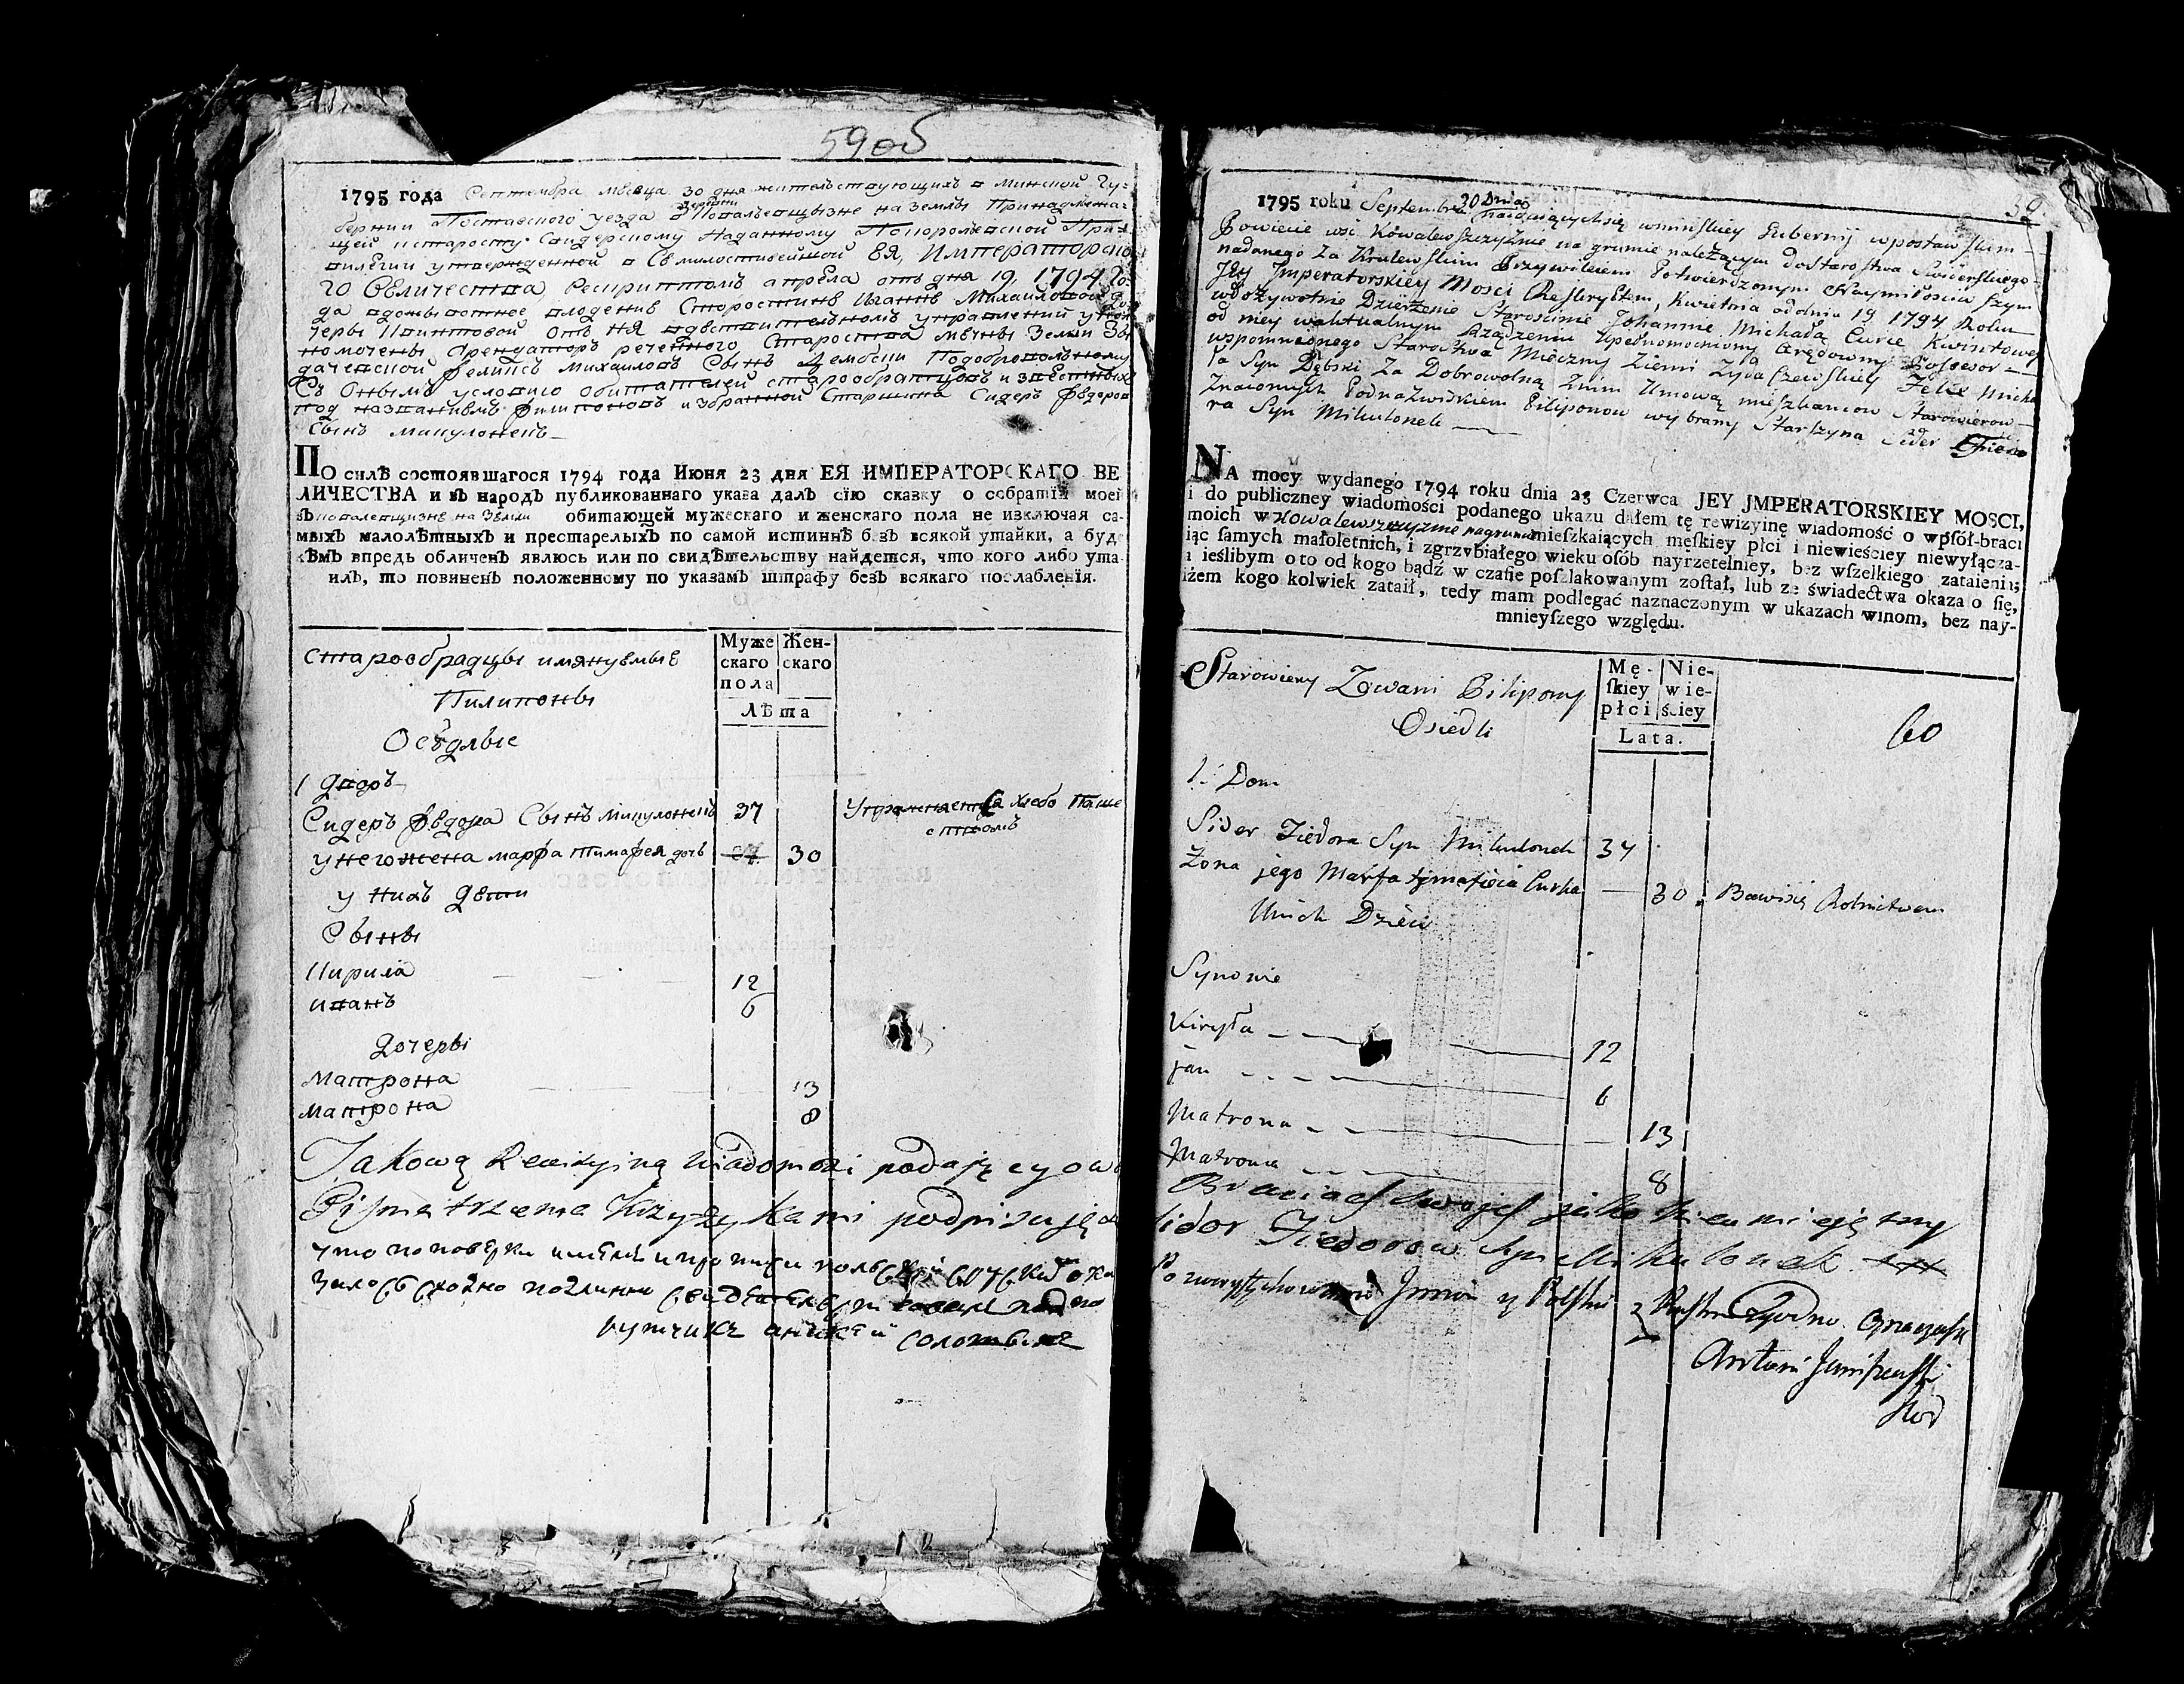 59об
1795 года Септембра мѣсяца 30 дня жительствующихъ в Минской Гу-
бернии Поставского уезда в деревни Ковалевщызне на Землѣ Принадлежа-
щей к старосту Свидерскому Наданному По королевской При-
вилегии утвержденной в Севмилостивейшой ЕЯ, Императорско-
го Величества Рескриптомъ апреля отъ дня 19, 1794 Го-
да вдожывотнее владение Старостинѣ Иганнѣ Михайловой до-
черы Квинтовой отъ ней вдействительномъ управлений упол-
номочены Арендаторъ реченного Староства мечны Земли Зы-
дачевской Феликсъ Михайловъ Сынъ Дембски Подобровольному
Съ Онымъ условию обитателей старообрадцовъ и звестныхъ
под названиемъ Филипоновъ избранной Старшина Сидеръ Федоров
Сынъ Микулонекъ
По силѣ состоявшагося 1794 года Июня 23 дня ЕЯ ИМПЕРАТОРСКАГО ВЕ
ЛИЧЕСТВА и въ народъ публикованнаго указа далъ сїю сказку о собратїи моей
въ Ковалевщизне на Земли обитающей мужескаго и женскаго пола не изключая са-
мыхъ малолѣтныхъ и престарелыхъ по самой истиннѣ безъ всякой утайки, а буде
кѣмъ впредь обличенъ явлюсь или по свидѣтельству найдется, что кого либо ута-
илъ, то повиненъ положенному по указамъ штрафу безъ всякаго послабленїя.
Старообрадцы имянуемые
Пилипоны
Оседлые
Муже скаго пола
Жен- скаго
Лѣта
1 Дворъ
Сидеръ Федора Сынъ Микулонекъ 37 Упражняется хлебо Паше
ством
у него жена марфа тимафея дочь 30
у нихъ дети
Сыны
Кирила 12
иванъ 6
Дочеры
Матрона 13
Матрона 8
Takową Rewizyiną wiadomość podaję o
Pisma trzema Krzyżykami podpisuję
что по поверки имений и прописи польской с русскою ока
залось сходно подлинни свидетельствую по
рутчикъ
1795 roku Septembra 30 Dnia znaiduiących się w mińskiey Gubernij w postawskim
Powiecie wsi Kowalewszczyźnie na gruncie należącym do starostwa Swiderskiego
nadanego za Krulewskim Przywileiem Potwierdzonym Naymiłościwszym
Jey Imperatorskiey Mosci Reskryptem, Kwietnia od dnia 19 1794 Roku
w dożywotnie Dzierżenie Starościnie Johannie Michała Curce Kwintowey
od niey w aktualnym Rządzeniu Upełnomocniony Arędowny Possesor
wspomnionego Starostwa Mieczny Ziemi Zydaczewskiey Felix Micha
ła Syn Dębski Za Dobrowolną z nim Umową mieszkańcow Starowierow
Znaiomych Pod nazwiskiem Piliponow wybrany Starszyna Sider Fiedo
ra Syn Mikulonek
59
NA mocy wydanego 1794 roku dnia 23 Czerwca JEY JMPERATORSKIEY MOSCI,
i do publiczney wiadomości podanego ukazu dałem tę rewizyinę wiadomość o wpſół-braci
moich w Kowalewszczyznie na gruncie mieſzkaiących męſkiey płci i niewieściey niewyłącza-
iąc ſamych małoletnich, i zgrzybiałego wieku osób nayrzetelniey, bez wſzelkiego zataienia;
a ieślibym o to od kogo bądź w czaſie poſzlakowanym zoſtał, lub ze świadectwa okaza o ſię,
iżem kogo kolwiek zataił, tedy mam podlegać naznaczonym w ukazach winom, bez nay-
mnieyſzego względu.
Starowiery Zowani Pilipony
Osiedli
Mę- ſkiey płci
Nie- wie- ściey
Lata.
60
1: Dom
Sider Fiedora Syn Mikulonek 37
Żona jego Marfa tymafieia Curka — 30 Bawi się Rolnictwem
U nich Dzieci
Synowie
Kiryła 12
jan 6
Matrona 13
Matrona 8
Braciach swoich jako nieumiejętny
Sidor Fiedorow Syn Mikulonek +++
Po zweryfikowaniu Imion y Polsku z Ruskim Zgodno
Antoni